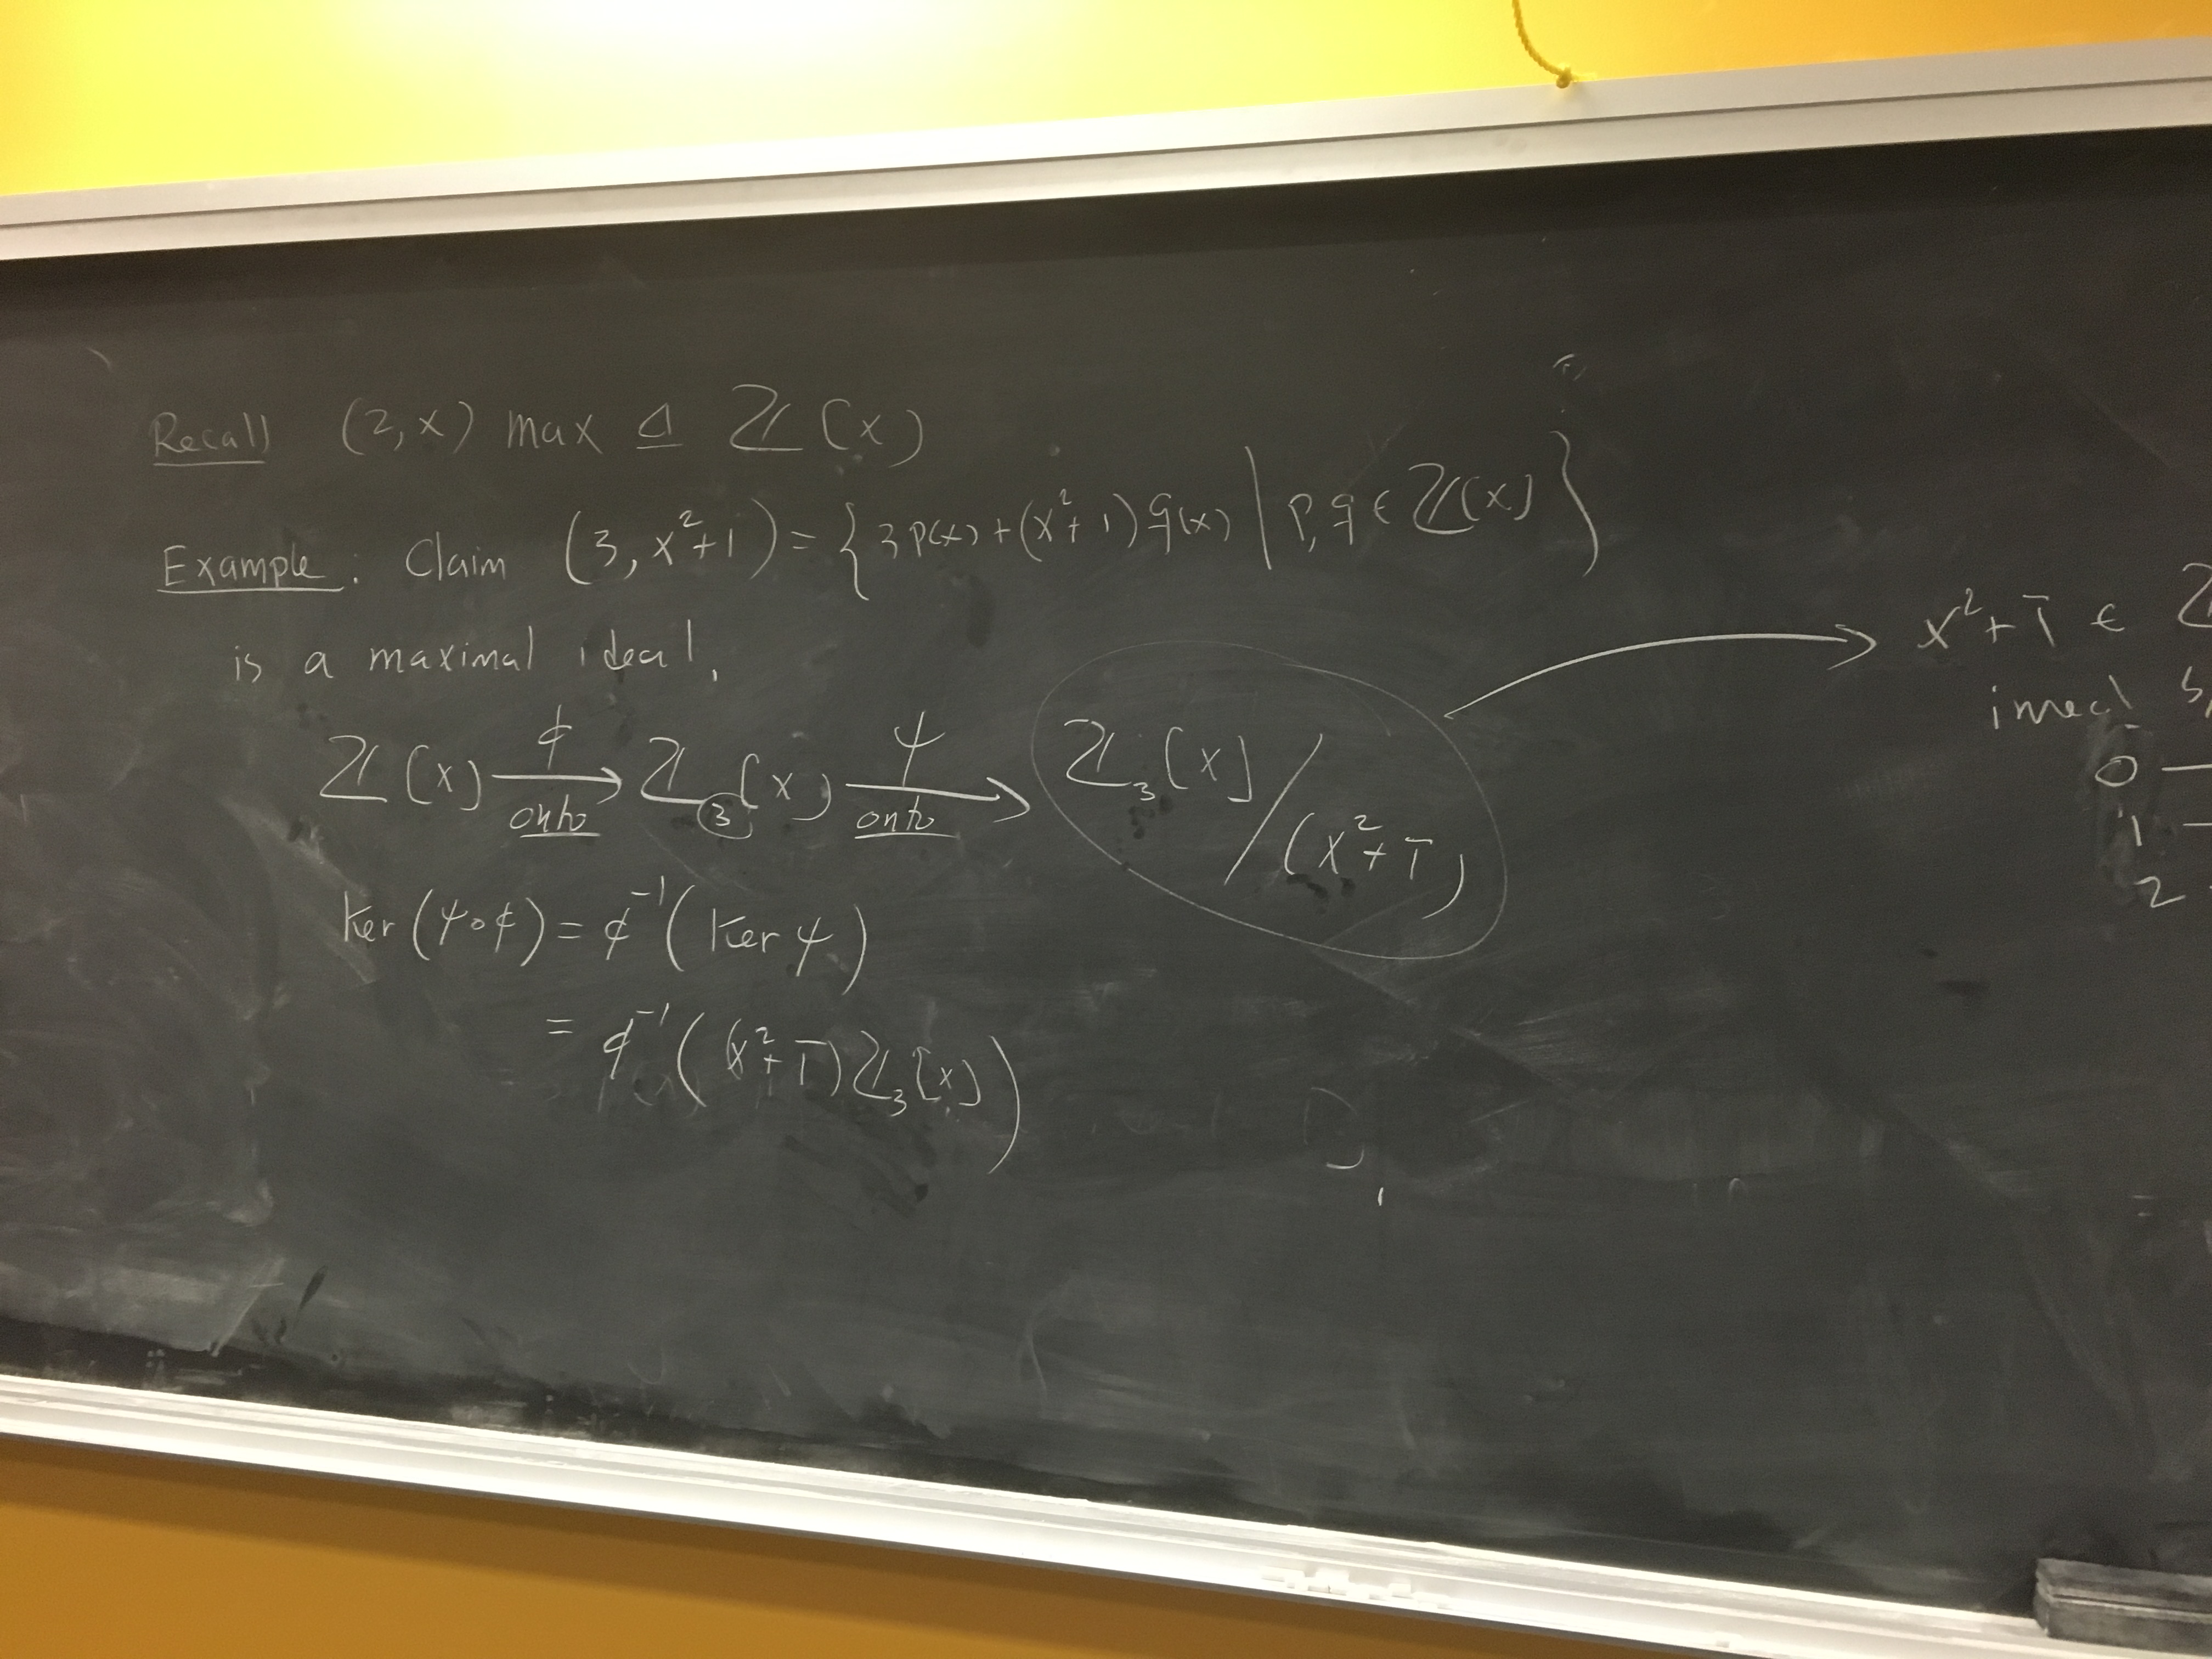 Recall (2, x) max ⊴ ℤ[x]
Example: Claim (3, x²+1) = { 3p(x) + (x²+1) q(x) | p, q ∈ ℤ[x] }
is a maximal ideal,
ℤ[x] —ϕ→ onto ℤ₃[x] —ψ→ onto ℤ₃[x] / (x²+1̄)
ker(ψ∘ϕ) = ϕ⁻¹(ker ψ)
= ϕ⁻¹((x²+1̄)ℤ₃[x])
x²+1̄ ∈ ℤ
irred
0 —
1 —
2